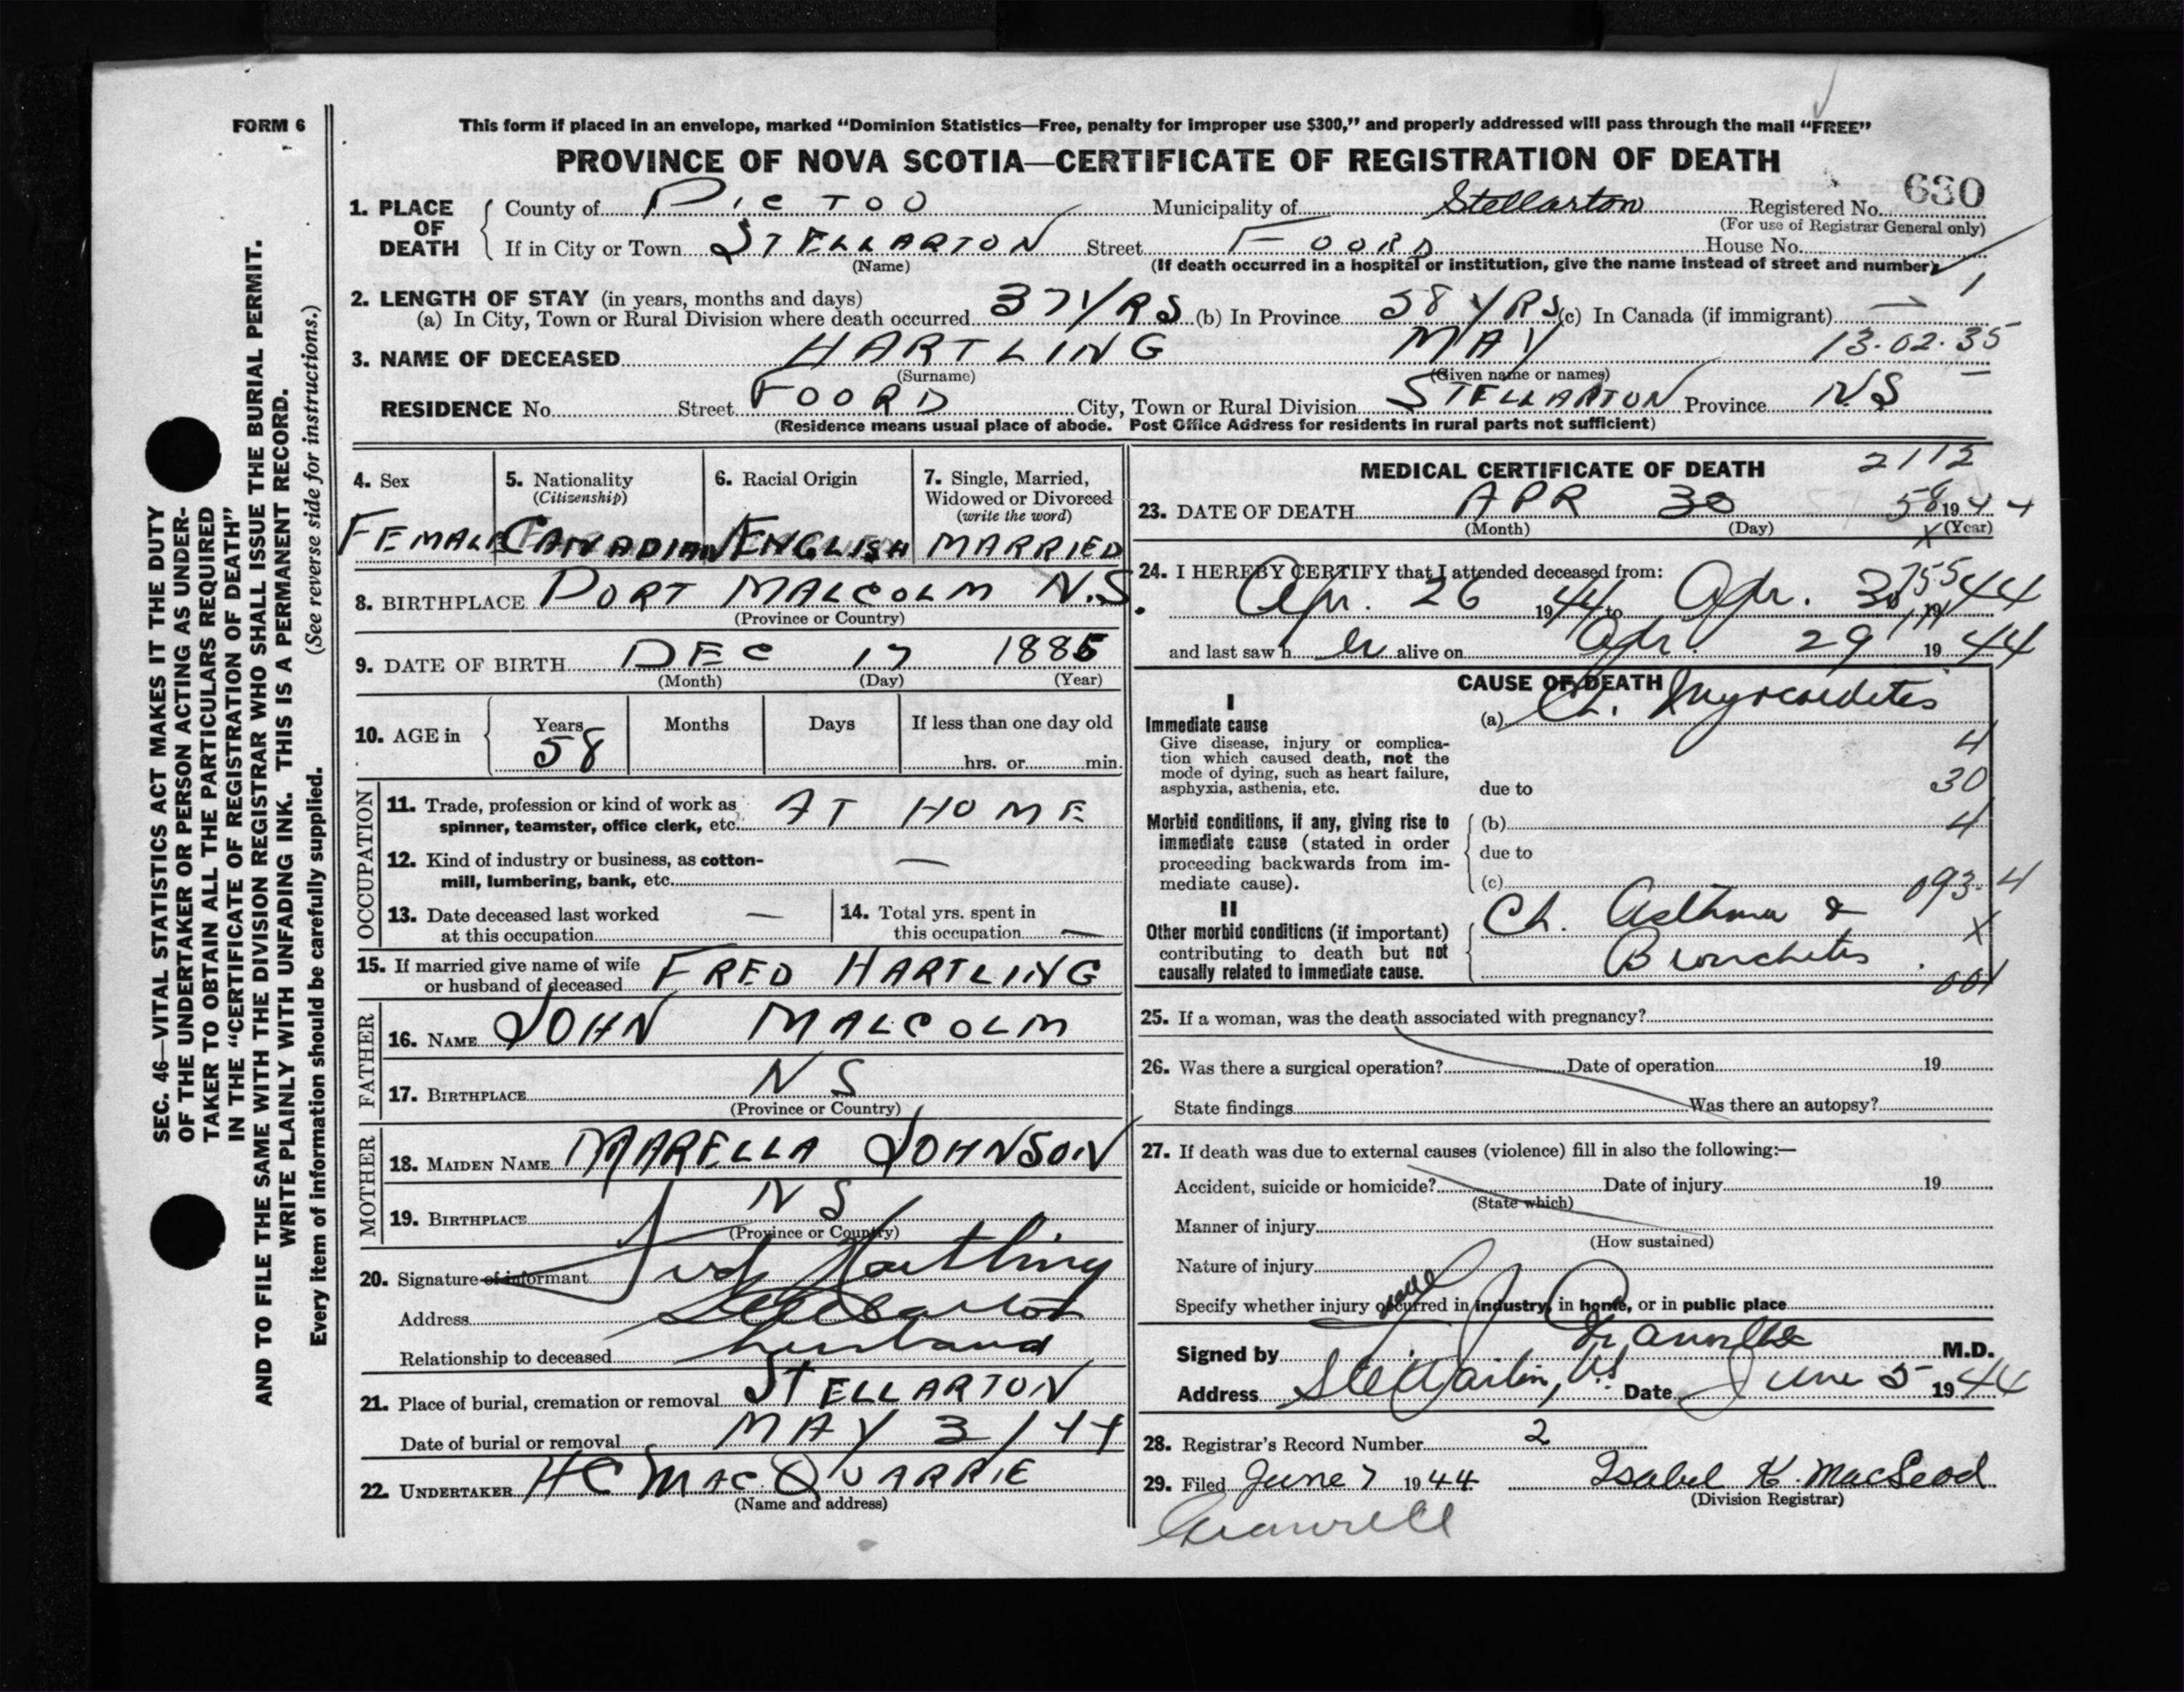 FORM 6
This form if placed in an envelope, marked “Dominion Statistics—Free, penalty for improper use $300,” and properly addressed will pass through the mail “FREE”
PROVINCE OF NOVA SCOTIA—CERTIFICATE OF REGISTRATION OF DEATH
630
1. PLACE OF DEATH County of PICTOU Municipality of Stellarton Registered No.
(For use of Registrar General only)
If in City or Town STELLARTON Street FOORD House No.
(Name) (If death occurred in a hospital or institution, give the name instead of street and number)
2. LENGTH OF STAY (in years, months and days) 1
(a) In City, Town or Rural Division where death occurred 37 YRS (b) In Province 58 YRS (c) In Canada (if immigrant) —
3. NAME OF DECEASED HARTLING MAY 13·02·35
(Surname) (Given name or names)
RESIDENCE No. Street FOORD City, Town or Rural Division STELLARTON Province NS
(Residence means usual place of abode. Post Office Address for residents in rural parts not sufficient)
4. Sex
FEMALE
5. Nationality
(Citizenship)
CANADIAN
6. Racial Origin
ENGLISH
7. Single, Married,
Widowed or Divorced
(write the word)
MARRIED
8. BIRTHPLACE PORT MALCOLM N.S.
(Province or Country)
9. DATE OF BIRTH DEC 17 1885
(Month) (Day) (Year)
10. AGE in Years Months Days If less than one day old
58 hrs. or min.
OCCUPATION
11. Trade, profession or kind of work as
spinner, teamster, office clerk, etc. AT HOME
12. Kind of industry or business, as cotton-
mill, lumbering, bank, etc. —
13. Date deceased last worked
at this occupation —
14. Total yrs. spent in
this occupation —
15. If married give name of wife
or husband of deceased FRED HARTLING
FATHER
16. NAME JOHN MALCOLM
17. BIRTHPLACE NS
(Province or Country)
MOTHER
18. MAIDEN NAME MARELLA JOHNSON
19. BIRTHPLACE NS
(Province or Country)
20. Signature of informant Fred Hartling
Address Stellarton
Relationship to deceased husband
21. Place of burial, cremation or removal STELLARTON
Date of burial or removal MAY 3/44
22. UNDERTAKER HC MACQUARRIE
(Name and address)
MEDICAL CERTIFICATE OF DEATH 2112
23. DATE OF DEATH APR 30 58 1944
(Month) (Day) (Year)
X
24. I HEREBY CERTIFY that I attended deceased from: 755
Apr. 26 1944 to Apr. 30 1944
and last saw her alive on Apr. 29 1944
CAUSE OF DEATH
I
Immediate cause
Give disease, injury or complica-
tion which caused death, not the
mode of dying, such as heart failure,
asphyxia, asthenia, etc.
(a) Ch. Myocarditis
4
due to 30
Morbid conditions, if any, giving rise to
immediate cause (stated in order
proceeding backwards from im-
mediate cause).
(b) 4
due to
(c) 093·4
II
Other morbid conditions (if important)
contributing to death but not
causally related to immediate cause.
Ch. Asthma & X
Bronchitis. 001
25. If a woman, was the death associated with pregnancy?
26. Was there a surgical operation? Date of operation 19
State findings Was there an autopsy?
27. If death was due to external causes (violence) fill in also the following:—
Accident, suicide or homicide? Date of injury 19
(State which)
Manner of injury
(How sustained)
Nature of injury
Specify whether injury occurred in industry, in home, or in public place
Signed by M.D.
Address Stellarton, N.S. Date June 5 1944
28. Registrar's Record Number 2
29. Filed June 7 1944 Isabel K. MacLeod
(Division Registrar)
SEC. 46—VITAL STATISTICS ACT MAKES IT THE DUTY
OF THE UNDERTAKER OR PERSON ACTING AS UNDER-
TAKER TO OBTAIN ALL THE PARTICULARS REQUIRED
IN THE “CERTIFICATE OF REGISTRATION OF DEATH”
AND TO FILE THE SAME WITH THE DIVISION REGISTRAR WHO SHALL ISSUE THE BURIAL PERMIT.
WRITE PLAINLY WITH UNFADING INK. THIS IS A PERMANENT RECORD.
Every item of information should be carefully supplied. (See reverse side for instructions.)